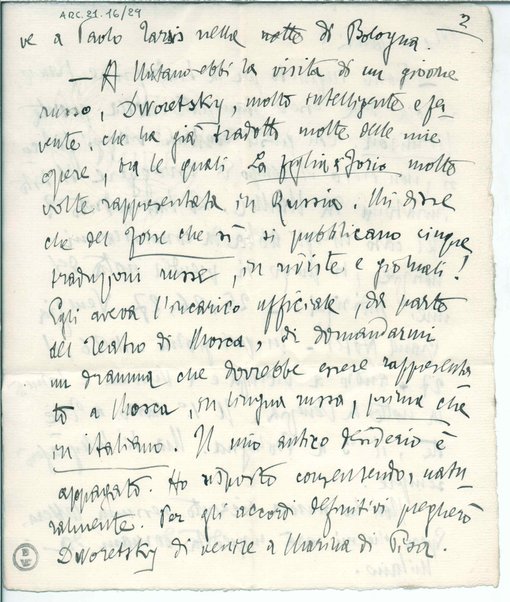 ARC.21.16/29
2
ve a Paolo Tarsis nella notte di Bologna.
— A Milano ebbi la visita di un giovane
russo, Dworetsky, molto intelligente e fer
vente, che ha già tradotto molte delle mie
opere, tra le quali La figlia di Jorio molto
volte rappresentata in Russia. Mi disse
che del Forse che sì si pubblicano cinque
traduzioni russe, in riviste e giornali!
Egli aveva l'incarico ufficiale, da parte
del Teatro di Mosca, di domandarmi
un dramma che dovrebbe essere rappresenta
to a Mosca, in lingua russa, prima che
in italiano. Il mio antico desiderio è
appagato. Ho risposto consentendo, natu
ralmente. Per gli accordi definitivi pregherò
Dworetsky di venire a Marina di Pisa.